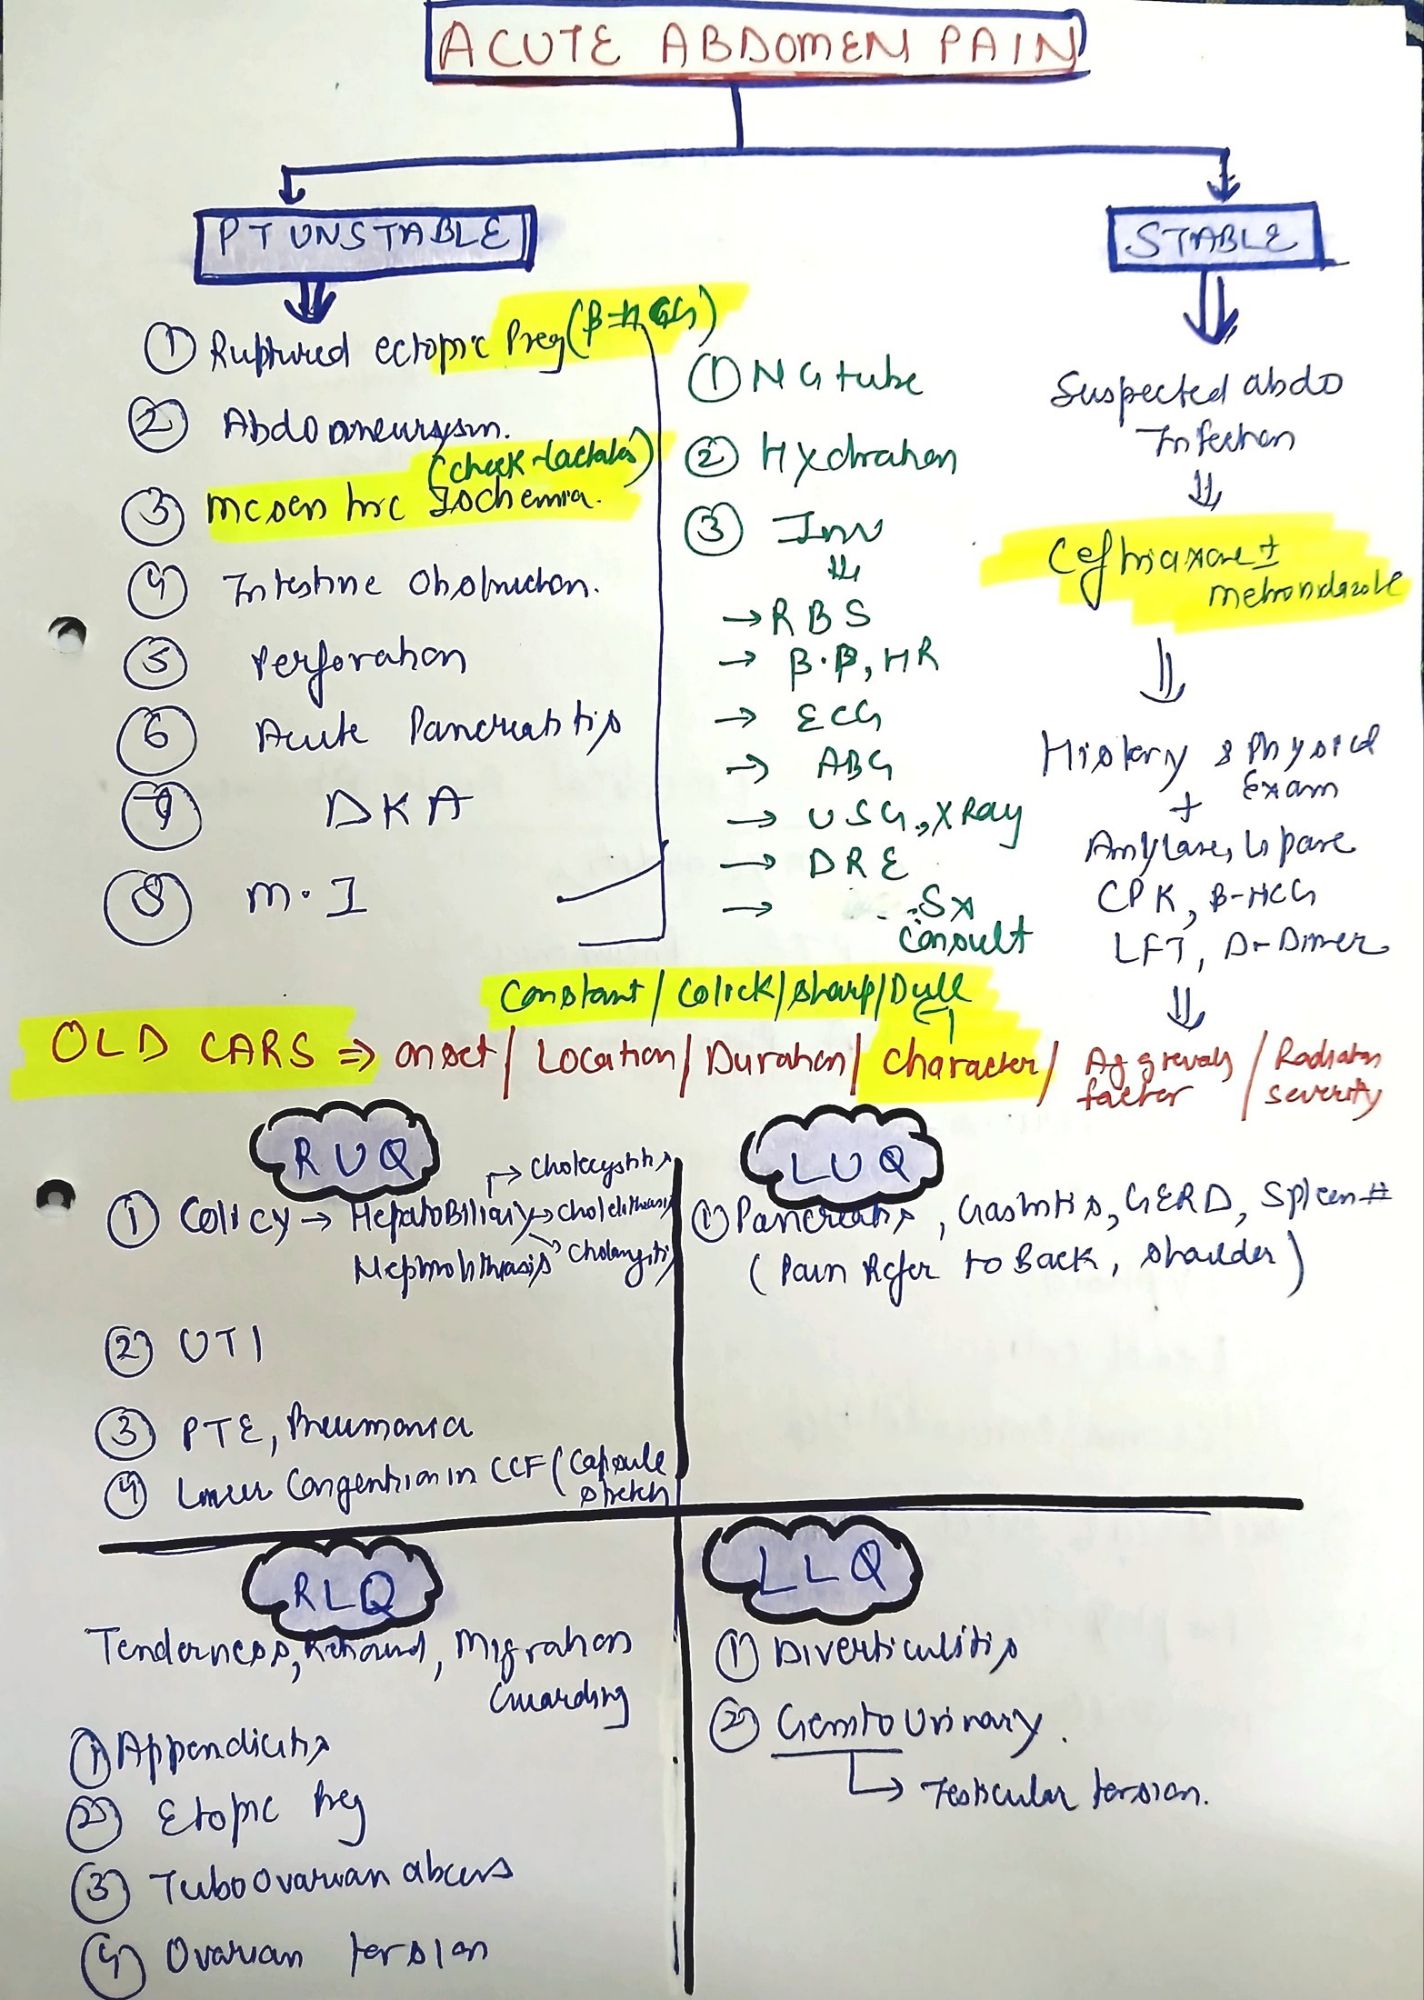 ACUTE ABDOMEN PAIN
PT UNSTABLE
① Ruptured ectopic Preg (β-HCG)
② Abdo aneurysm.
(check-lactates)
③ mesentric Ischemia.
④ Intestine Obstruction.
⑤ Perforation
⑥ Acute Pancreatitis
⑦ DKA
⑧ M.I
① NG tube
② Hydration
③ Inv
→ RBS
→ B.P, HR
→ ECG
→ ABG
→ USG, X Ray
→ DRE
→ Sx
Consult
STABLE
Suspected abdo
Infection
Ceftriaxone ±
metronidazole
History & Physical
Exam
+
Amylase, Lipase
CPK, B-HCG
LFT, D-Dimer
Constant / Colick / sharp / Dull
OLD CARS ⇒ onset / Location / Duration / character / Aggrevats / Radiation
factor severity
RUQ
① Colicy → HepatoBiliary → Cholecystitis
→ cholelithiasis
Nephrolithiasis → Cholangiti
② UTI
③ PTE, Pneumonia
④ Liver Congention in CCF (Capsule
stretch
LUQ
① Pancreatis, Gastritis, GERD, Spleen #
(Pain Refer to Back, shoulder)
RLQ
Tenderness, Rebound, Migration
Guarding
① Appendicitis
② Etopic Preg
③ Tubo Ovarian abcess
④ Ovarian torsion
LLQ
① Diverticulitis
② Genito Urinary.
→ Testicular torsion.